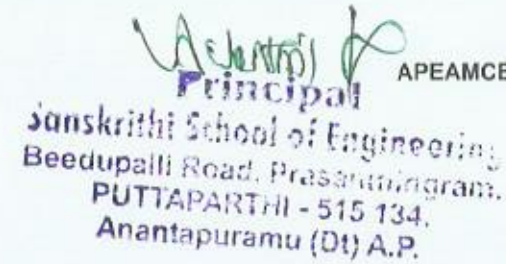 APEAMCE
Principal
Sanskrithi School of Engineering
Beedupalli Road. Prasanthingram.
PUTTAPARTHI - 515 134.
Anantapuramu (Dt) A.P.